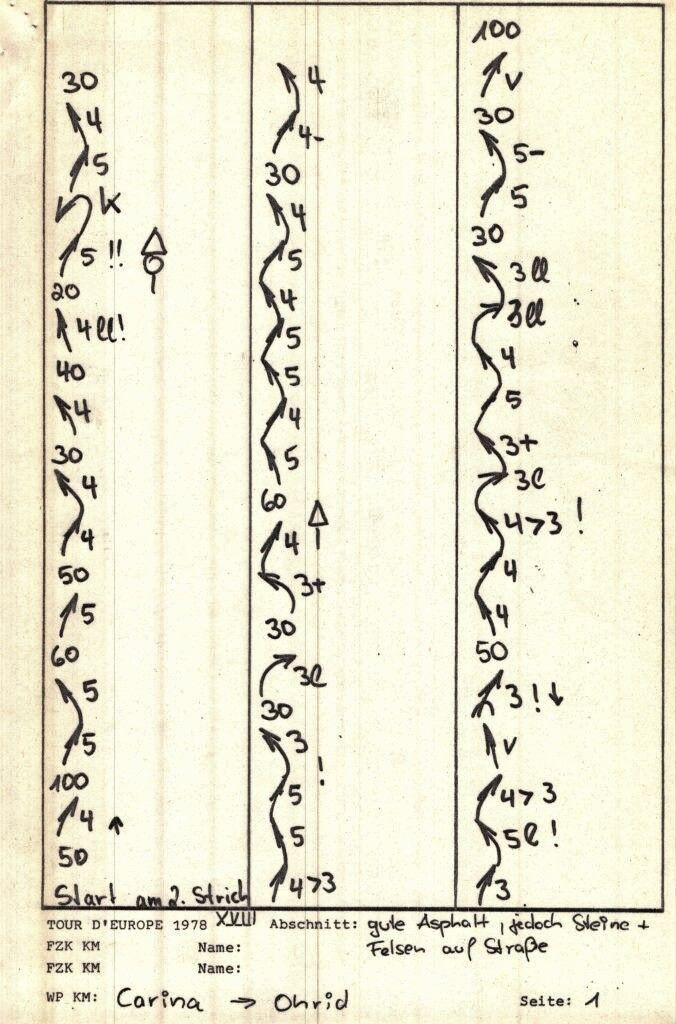 30
4
5
k
5 !!
20
4ll!
40
4
30
4
4
50
5
60
5
5
100
4
50
Start am 2. Strich
4
4-
30
4
5
4
5
5
4
5
60
4
3+
30
3l
30
3
!
5
5
4>3
100
v
30
5-
5
30
3ll
3ll
4
5
3+
3l
4>3 !
4
4
50
3!↓
v
4>3
5l !
3
TOUR D'EUROPE 1978 XVIII Abschnitt: gute Asphalt, jedoch Steine +
FZK KM Name: Felsen auf Straße
FZK KM Name:
WP KM: Carina → Ohrid Seite: 1